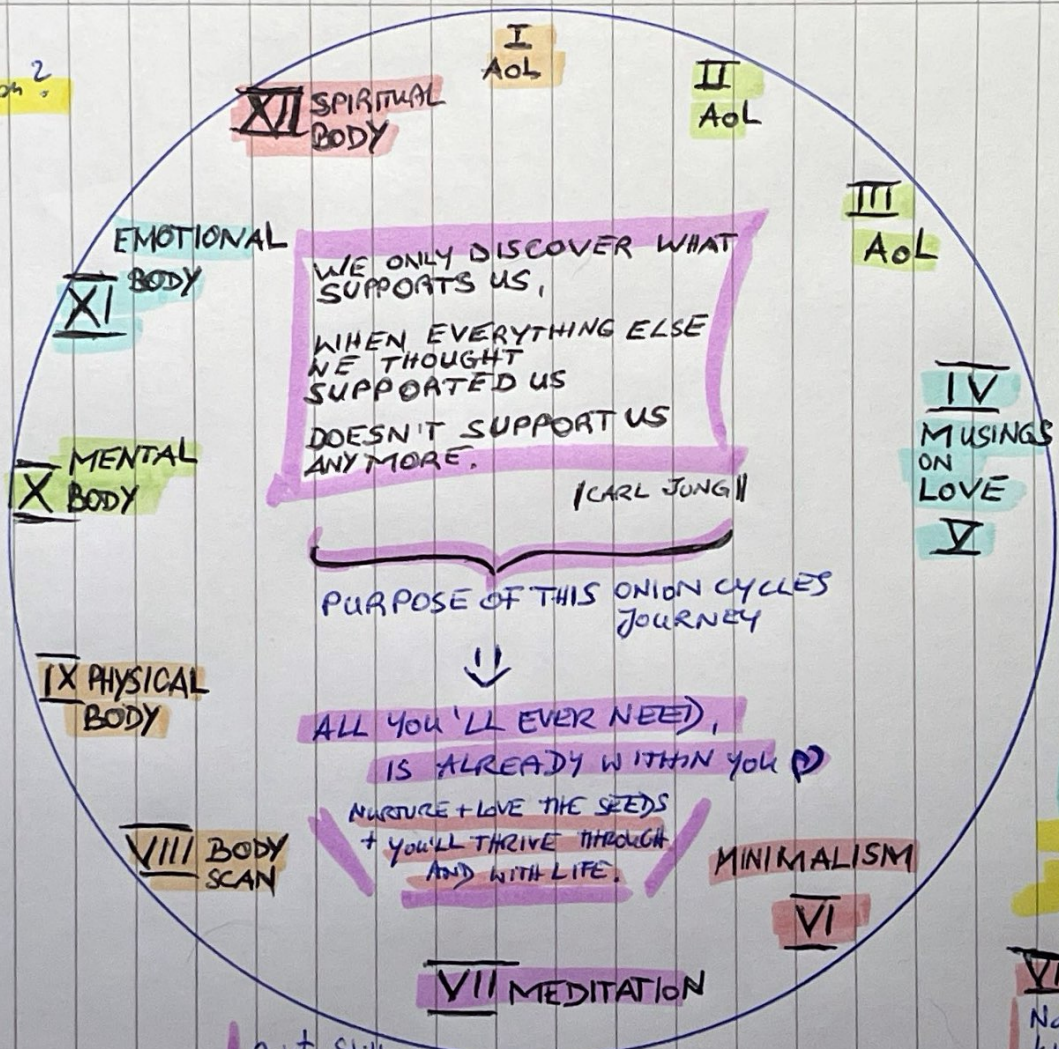 I
AoL
II
AoL
III
AoL
IV
MUSINGS
ON
LOVE
V
MINIMALISM
VI
VII MEDITATION
VIII BODY
SCAN
IX PHYSICAL
BODY
X MENTAL
BODY
EMOTIONAL
XI BODY
XII SPIRITUAL
BODY
WE ONLY DISCOVER WHAT
SUPPORTS US,
WHEN EVERYTHING ELSE
WE THOUGHT
SUPPORTED US
DOESN'T SUPPORT US
ANYMORE.
/CARL JUNG//
PURPOSE OF THIS ONION CYCLES
JOURNEY
ALL YOU'LL EVER NEED,
IS ALREADY WITHIN YOU
NURTURE + LOVE THE SEEDS
+ YOU'LL THRIVE THROUGH
AND WITH LIFE.